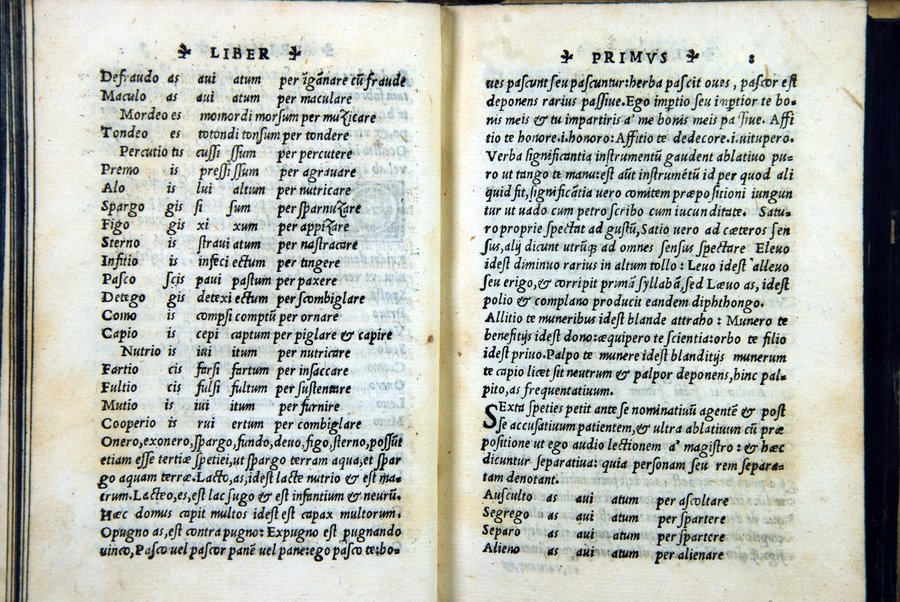 LIBER
Defraudo as aui atum per ĩgãnare cũ fraude
Maculo as aui atum per maculare
Mordeo es momordi morsum per muzicare
Tondeo es totondi tonsum per tondere
Percutio tis cussi ssum per percutere
Premo is pressi ssum per agrauare
Alo is lui altum per nutricare
Spargo gis si sum per sparnuzare
Figo gis xi xum per appizare
Sterno is straui atum per nastracare
Infitio is infeci ectum per tingere
Pasco scis paui pastum per paxere
Detego gis detexi ectum per scombiglare
Como is compsi comptũ per ornare
Capio is cepi captum per piglare & capire
Nutrio is iui itum per nutricare
Fartio cis farsi fartum per insaccare
Fultio cis fulsi fultum per sustentare
Mutio is iui itum per furnire
Cooperio is rui ertum per combiglare
Onero, exonero, spargo, fundo, deuo, figo, sterno, possũt
etiam esse tertiæ spetiei, ut spargo terram aqua, et spar
go aquam terræ. Lacto, as, idest lacte nutrio et est ma-
trum. Lacteo, es, est lac sugo & est infantium & neurũ.
Hæc domus capit multos idest est capax multorum.
Opugno as, est contra pugno: Expugno est pugnando
uinco, Pasco uel pascor panẽ uel pane: ego pasco te: bo-
PRIMVS 8
ues pascunt seu pascuntur: herba pascit oues, pascor est
deponens rarius passiue. Ego imptio seu imptior te bo-
nis meis & tu impartiris a' me bonis meis passiue. Affi
tio te honore .i. honoro: Affitio te dedecore .i. uitupero.
Verba significantia instrumentũ gaudent ablatiuo pu-
ro ut tango te manu: est aũt instrumẽtũ id per quod ali
quid fit, significãtia uero comitem præpositioni iungun
tur ut uado cum petro scribo cum iucunditate. Satu-
ro proprie spectat ad gustũ, Satio uero ad cæteros sen
sus, alij dicunt utrũq; ad omnes sensus spectare Eleuo
idest diminuo rarius in altum tollo: Leuo idest alleuo
seu erigo, & corripit primã syllabã, sed Læuo as, idest
polio & complano producit eandem diphthongo.
Allitio te muneribus idest blande attraho: Munero te
benefitijs idest dono: æquipero te scientia: orbo te filio
idest priuo. Palpo te munere idest blanditijs munerum
te capio licet sit neutrum & palpor deponens, hinc pal-
pito, as frequentatiuum.
SExta speties petit ante se nominatiuũ agentẽ & post
se accusatiuum patientem, & ultra ablatiuum cũ præ
positione ut ego audio lectionem a' magistro: & hæc
dicuntur separatiua: quia personam seu rem separa-
tam denotant.
Ausculto as aui atum per ascoltare
Segrego as aui atum per spartere
Separo as aui atum per spartere
Alieno as aui atum per alienare